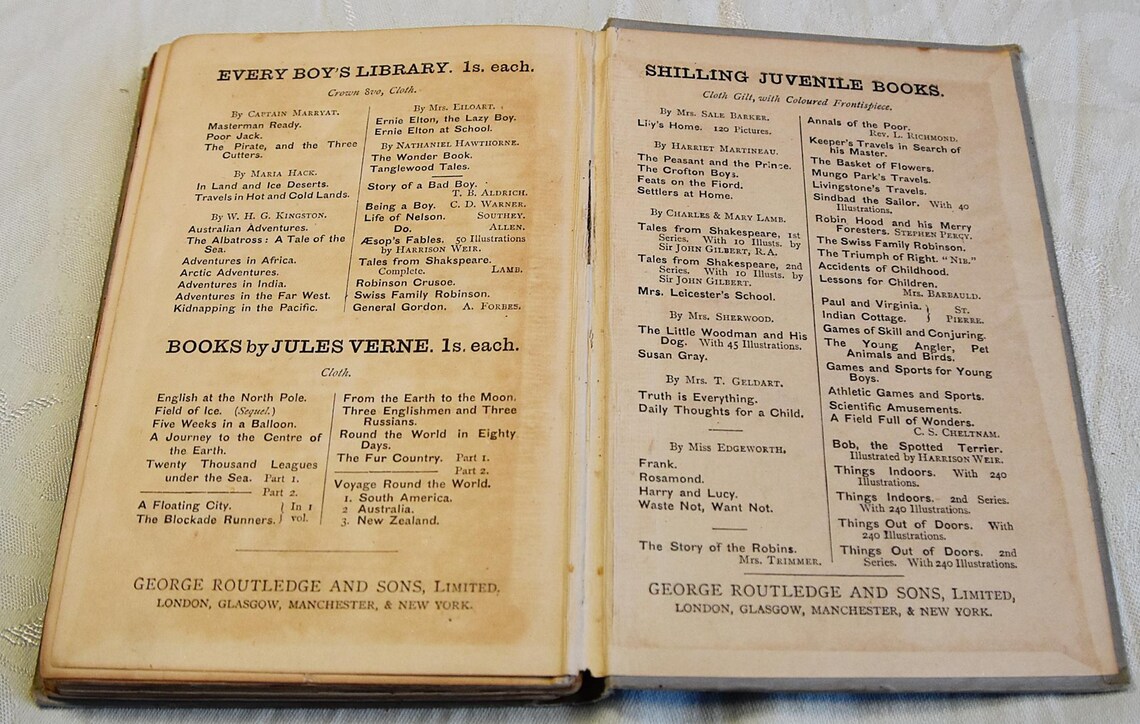 EVERY BOY'S LIBRARY. 1s. each.
Crown 8vo, Cloth.
By CAPTAIN MARRYAT.
Masterman Ready.
Poor Jack.
The Pirate, and the Three
Cutters.
By MARIA HACK.
In Land and Ice Deserts.
Travels in Hot and Cold Lands.
By W. H. G. KINGSTON.
Australian Adventures.
The Albatross: A Tale of the
Sea.
Adventures in Africa.
Arctic Adventures.
Adventures in India.
Adventures in the Far West.
Kidnapping in the Pacific.
By MRS. EILOART.
Ernie Elton, the Lazy Boy.
Ernie Elton at School.
By NATHANIEL HAWTHORNE.
The Wonder Book.
Tanglewood Tales.
Story of a Bad Boy.
T. B. ALDRICH.
Being a Boy. C. D. WARNER.
Life of Nelson. SOUTHEY.
Do. ALLEN.
Æsop's Fables. 50 Illustrations
by HARRISON WEIR.
Tales from Shakspeare.
Complete. LAMB.
Robinson Crusoe.
Swiss Family Robinson.
General Gordon. A. FORBES.
BOOKS by JULES VERNE. 1s. each.
Cloth.
English at the North Pole.
Field of Ice. (Sequel.)
Five Weeks in a Balloon.
A Journey to the Centre of
the Earth.
Twenty Thousand Leagues
under the Sea. Part 1.
Part 2.
A Floating City. } In 1
The Blockade Runners. } vol.
From the Earth to the Moon.
Three Englishmen and Three
Russians.
Round the World in Eighty
Days.
The Fur Country. Part 1.
Part 2.
Voyage Round the World.
1. South America.
2 Australia.
3. New Zealand.
GEORGE ROUTLEDGE AND SONS, LIMITED,
LONDON, GLASGOW, MANCHESTER, & NEW YORK.
SHILLING JUVENILE BOOKS.
Cloth Gilt, with Coloured Frontispiece.
By MRS. SALE BARKER.
Lily's Home. 120 Pictures.
By HARRIET MARTINEAU.
The Peasant and the Prince.
The Crofton Boys.
Feats on the Fiord.
Settlers at Home.
By CHARLES & MARY LAMB.
Tales from Shakespeare, 1st
Series. With 10 Illusts. by
Sir JOHN GILBERT, R.A.
Tales from Shakespeare, 2nd
Series. With 10 Illusts. by
Sir JOHN GILBERT.
Mrs. Leicester's School.
By MRS. SHERWOOD.
The Little Woodman and His
Dog. With 45 Illustrations.
Susan Gray.
By MRS. T. GELDART.
Truth is Everything.
Daily Thoughts for a Child.
By MISS EDGEWORTH.
Frank.
Rosamond.
Harry and Lucy.
Waste Not, Want Not.
The Story of the Robins.
MRS. TRIMMER.
Annals of the Poor.
REV. L. RICHMOND.
Keeper's Travels in Search of
his Master.
The Basket of Flowers.
Mungo Park's Travels.
Livingstone's Travels.
Sindbad the Sailor. With 40
Illustrations.
Robin Hood and his Merry
Foresters. STEPHEN PERCY.
The Swiss Family Robinson.
The Triumph of Right. "NIB."
Accidents of Childhood.
Lessons for Children.
MRS. BARBAULD.
Paul and Virginia. } ST.
Indian Cottage. } PIERRE.
Games of Skill and Conjuring.
The Young Angler, Pet
Animals and Birds.
Games and Sports for Young
Boys.
Athletic Games and Sports.
Scientific Amusements.
A Field Full of Wonders.
C. S. CHELTNAM.
Bob, the Spotted Terrier.
Illustrated by HARRISON WEIR.
Things Indoors. With 240
Illustrations.
Things Indoors. 2nd Series.
With 240 Illustrations.
Things Out of Doors. With
240 Illustrations.
Things Out of Doors. 2nd
Series. With 240 Illustrations.
GEORGE ROUTLEDGE AND SONS, LIMITED,
LONDON, GLASGOW, MANCHESTER, & NEW YORK.